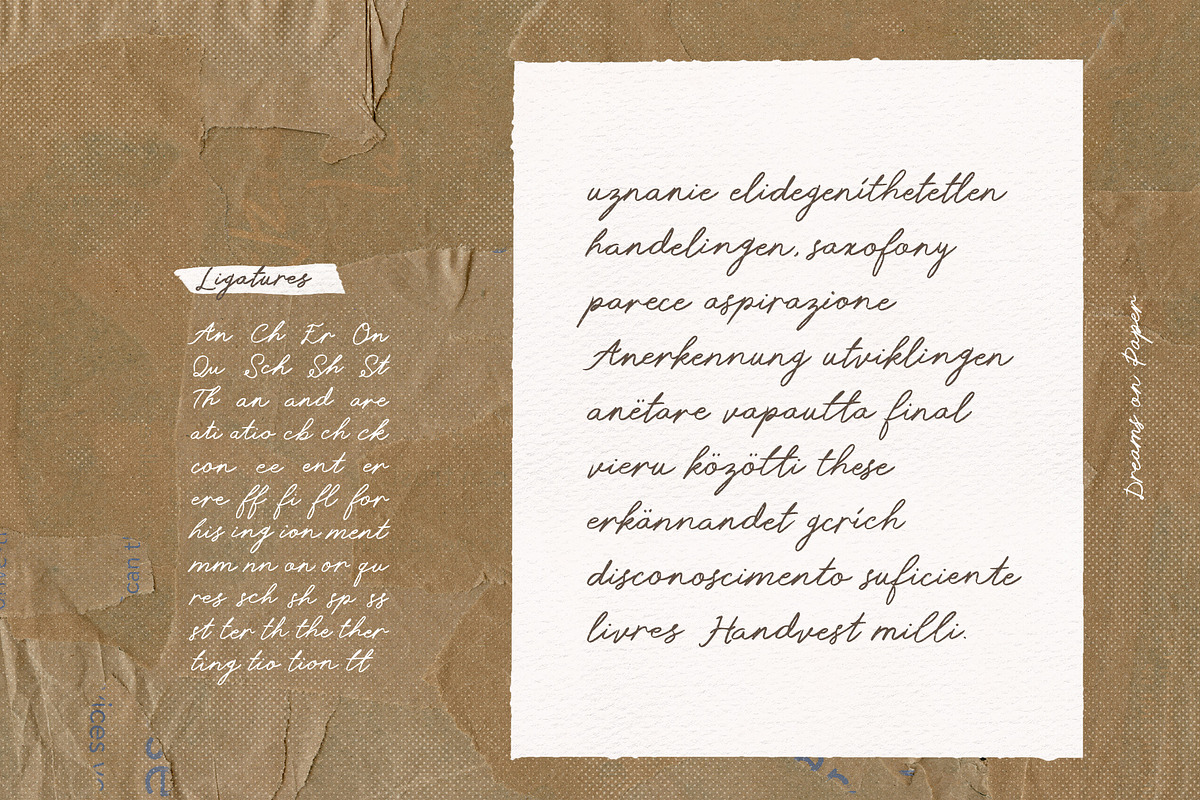 Ligatures
An Ch Er On
Qu Sch Sh St
Th an and are
ati atio cb ch ck
con ee ent er
ere ff fi fl for
his ing ion ment
mm nn on or qu
res sch sh sp ss
st ter th the ther
ting tio tion tt
uznanie elidegeníthetetlen
handelingen, saxofony
parece aspirazione
Anerkennung utviklingen
anëtare vapautta final
vieru közötti these
erkännandet gcrích
disconoscimento suficiente
livres Handvest milli.
Dreams on Paper
can t
ices
se